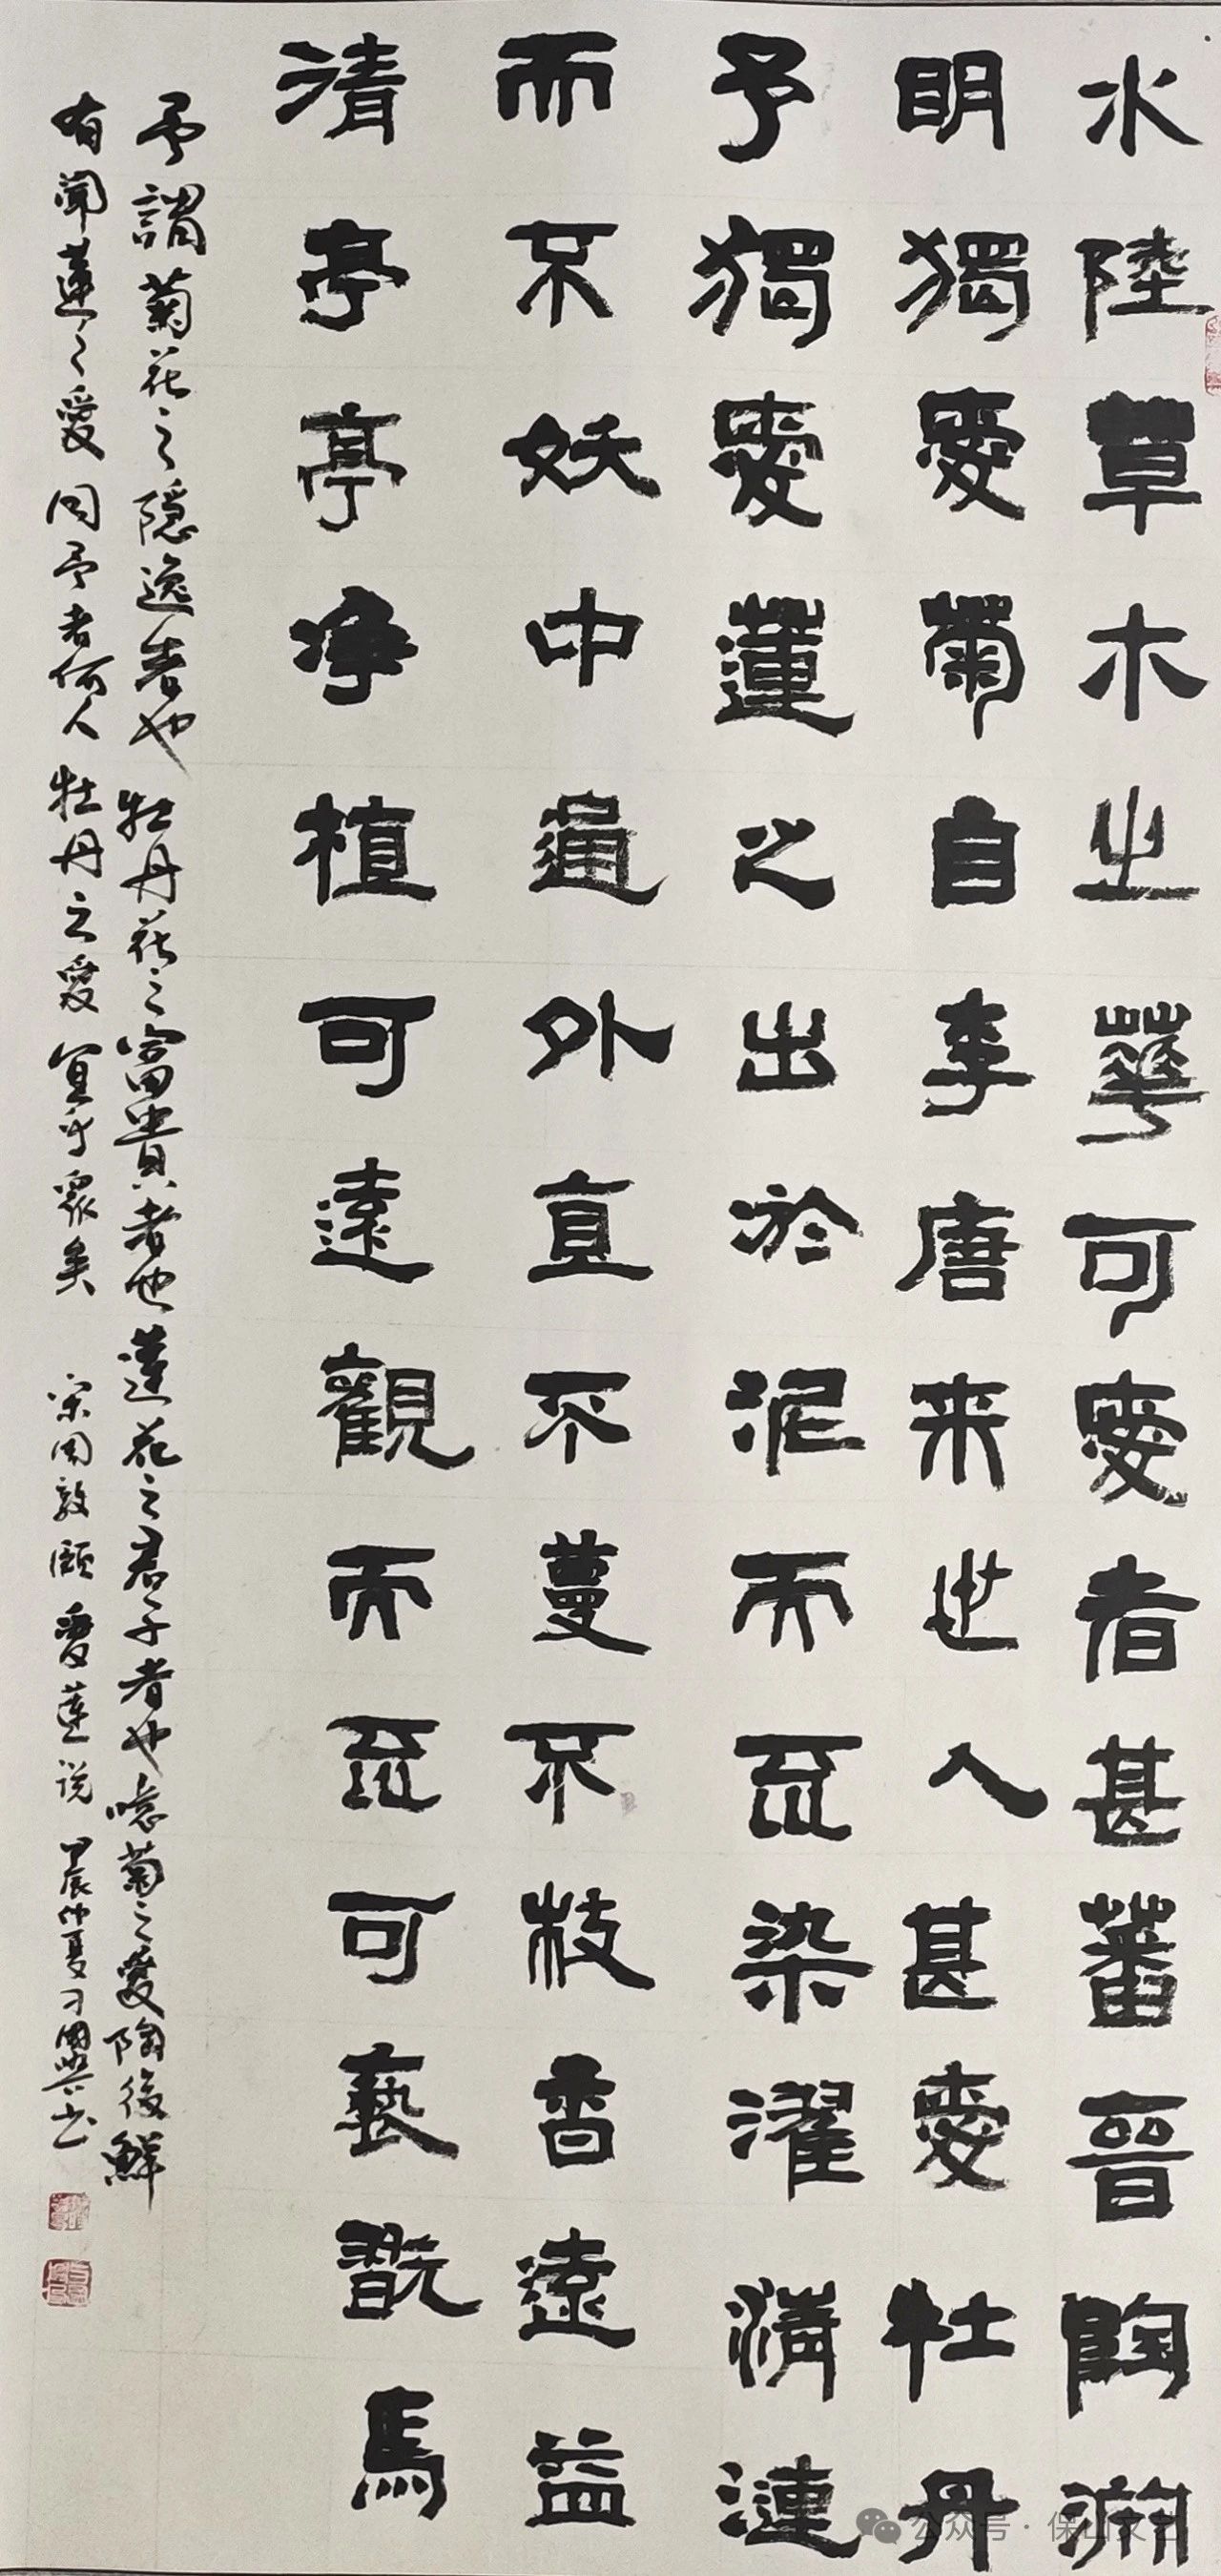 水陸草木之華可愛者甚蕃晉陶淵
明獨愛菊自李唐来世人甚愛牡丹
予獨愛蓮之出於泥而不染濯清漣
而不妖中通外直不蔓不枝香遠益
清亭亭净植可遠觀而不可褻翫焉
予謂菊花之隱逸者也牡丹花之富貴者也蓮花之君子者也噫菊之愛陶後鮮
有聞蓮之愛同予者何人牡丹之愛宜乎衆矣 宋周敦頤愛蓮説 甲辰仲夏刁國興书
公众号·保山文艺